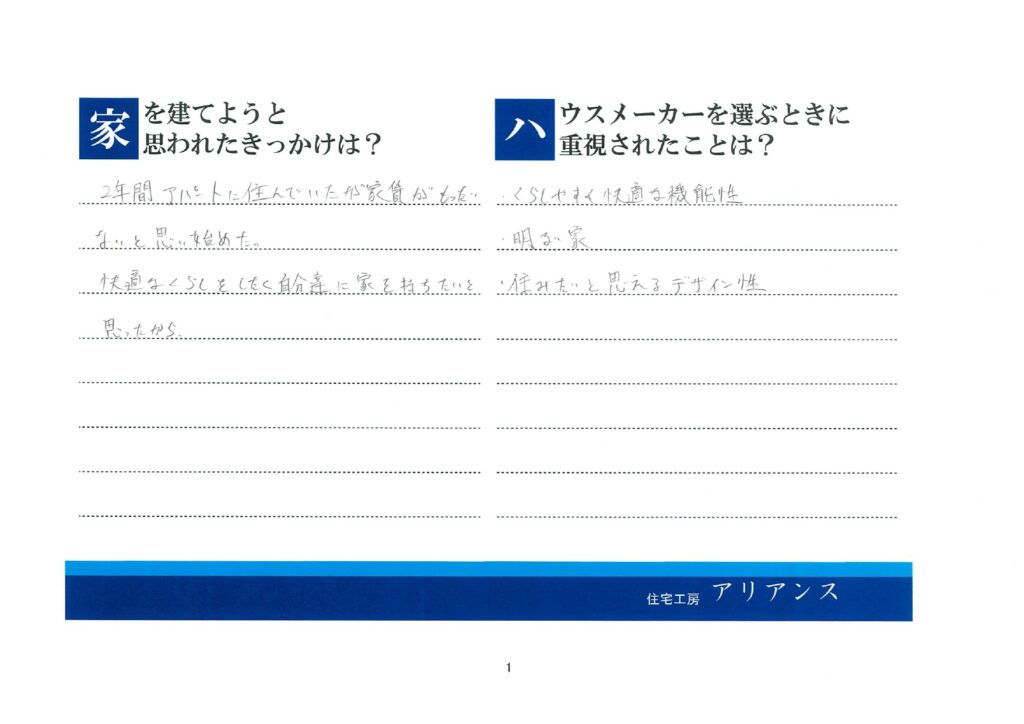 家を建てようと
思われたきっかけは？
2年間アパートに住んでいたが家賃がもったい
ないと思い始めた。
快適なくらしをしたく自分達に家を持ちたいと
思ったから、
ハウスメーカーを選ぶときに
重視されたことは？
・くらしやすく快適な機能性
・明るい家
・住みたいと思えるデザイン性
住宅工房 アリアンス
1